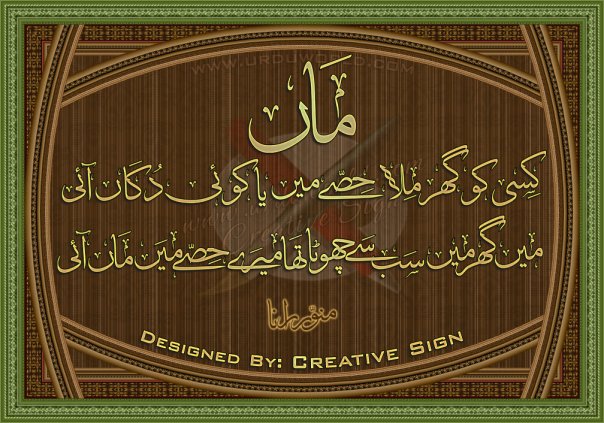 WWW.URDUWORLD.COM
ماں
کسی کو گھر ملا حصے میں یا کوئی دکاں آئی
میں گھر میں سب سے چھوٹا تھا میرے حصے میں ماں آئی
منور رانا
DESIGNED BY: CREATIVE SIGN